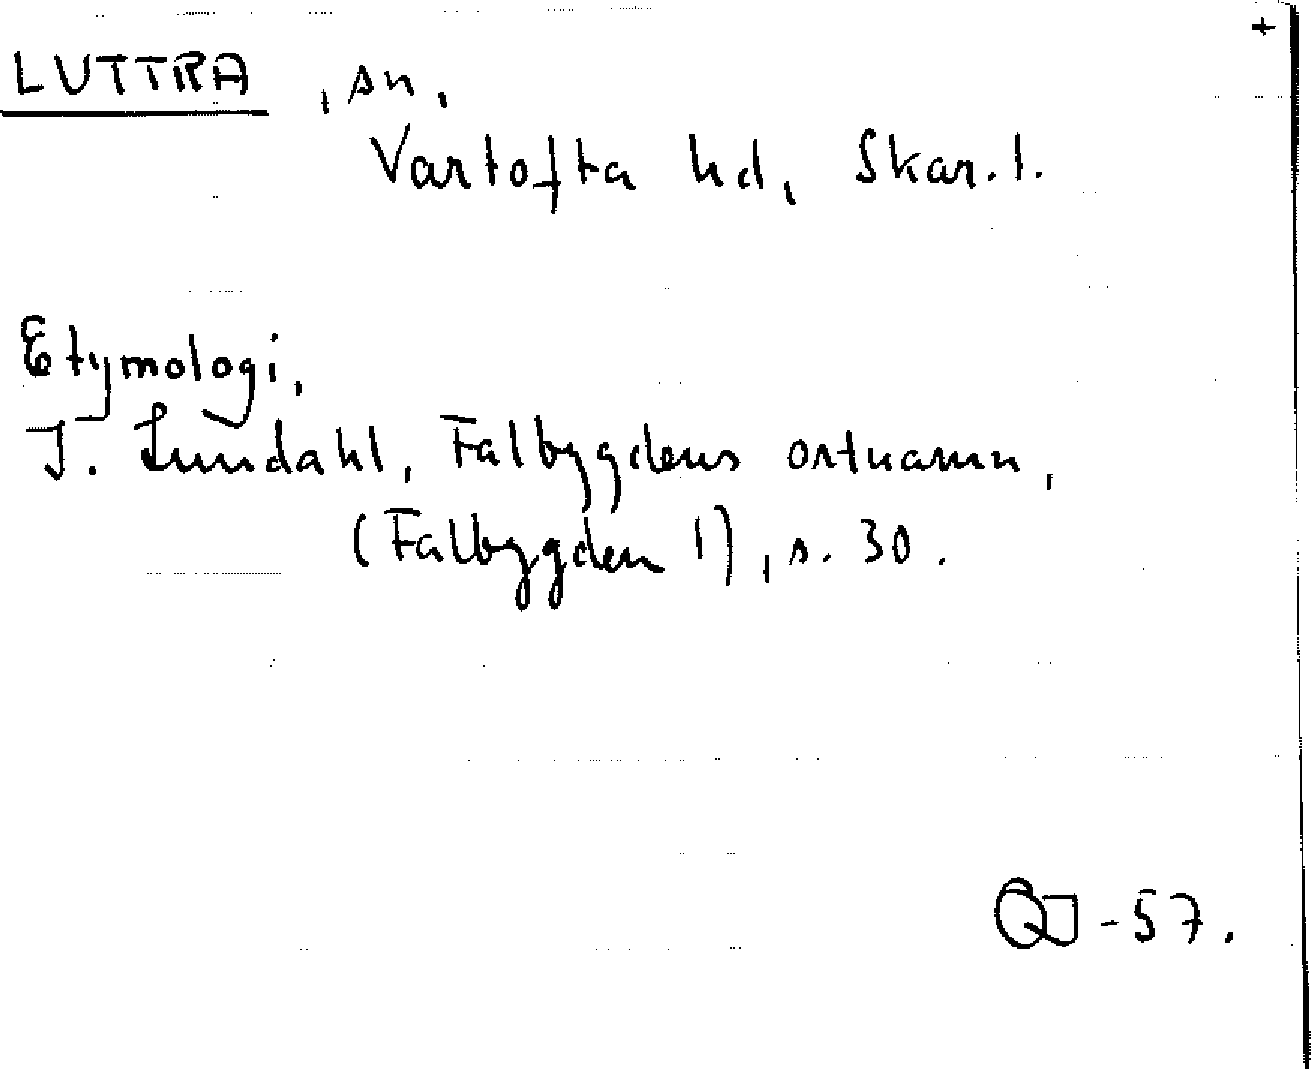 +
LUTTRA, sn,
Vartofta hd, Skar. l.
Etymologi,
J. Lundahl, Falbygdens ortnamn,
(Falbygden 1), s. 30.
-57.